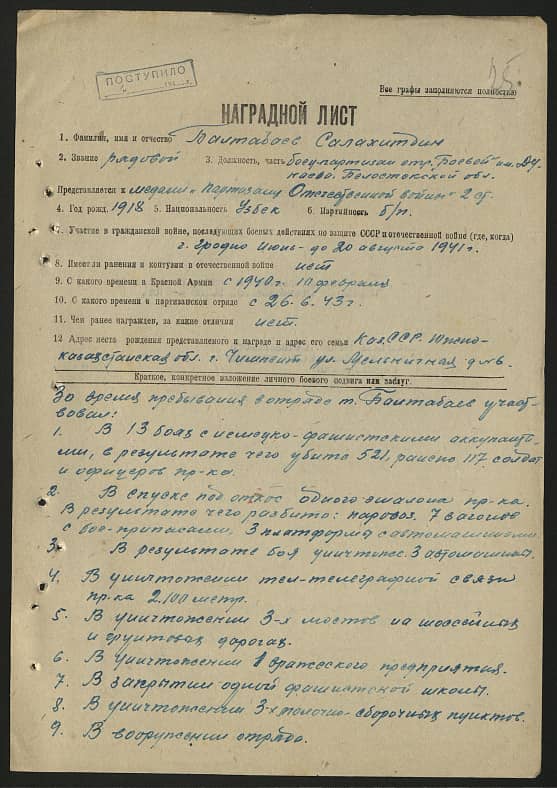 25.
ПОСТУПИЛО
Все графы заполняются полностью
НАГРАДНОЙ ЛИСТ
1. Фамилия, имя и отчество Балтабаев Салахитдин
2. Звание рядовой 3. Должность, часть боец партизан отр. "Боевой" им. Ду-
наева. Белостокской обл.
Представляется к медали "Партизану Отечественной войны" 2 ст.
4. Год рожд. 1918 5. Национальность Узбек 6. Партийность б/п.
7. Участие в гражданской войне, последующих боевых действиях по защите СССР и отечественной войне (где, когда)
г. Гродно Июнь - до 20 августа 1941 г.
8. Имеет ли ранения и контузии в отечественной войне нет
9. С какого времени в Красной Армии с 1940 г. 10 февраля
10. С какого времени в партизанском отряде с 26.6.43 г.
11. Чем ранее награжден, за какие отличия нет.
12 Адрес места рождения представляемого к награде и адрес его семьи Каз.ССР. Южно-
казахстанская обл. г. Чимкент ул. Мельничная д.
Краткое, конкретное изложение личного боевого подвига или заслуг.
За время пребывания в отряде т. Балтабаев участ-
вовал:
1. В 13 боях с немецко-фашистскими аккупанта-
ми, в результате чего убито 521, ранено 117 солдат
и офицеров пр-ка.
2. В спуске под откос одного эшалона пр-ка.
В результате чего разбито: паровоз. 7 вагонов
с бое-припасами, 3 платформы с автомашинами.
3. В результате боя уничтожен. 3 автомашины.
4. В уничтожении тел-телеграфной связи
пр-ка 2.100 метр.
5. В уничтожении 3-х мостов на шоссейных
и грунтовых дорогах.
6. В уничтожении 1 вражеского предприятия.
7. В закрытии одной фашистской школы.
8. В уничтожении 3-х молочно-сборочных пунктов.
9. В вооружении отряда.